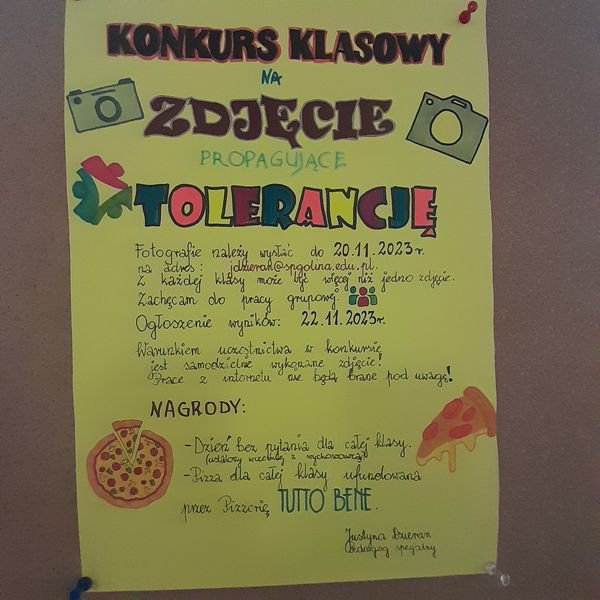 KONKURS KLASOWY
NA
ZDJĘCIE
PROPAGUJĄCE
TOLERANCJĘ
Fotografie należy wysłać do 20.11.2023r.
na adres: jdzieran@spgolina.edu.pl.
Z każdej klasy może być więcej niż jedno zdjęcie.
Zachęcam do pracy grupowej.
Ogłoszenie wyników: 22.11.2023r.
Warunkiem uczestnictwa w konkursie
jest samodzielnie wykonane zdjęcie!
Prace z internetu nie będą brane pod uwagę!
NAGRODY:
-Dzień bez pytania dla całej klasy.
(ustalony wcześniej z wychowawcą)
-Pizza dla całej klasy ufundowana
przez Pizzerię TUTTO BENE.
Justyna Dzieran
Pedagog specjalny